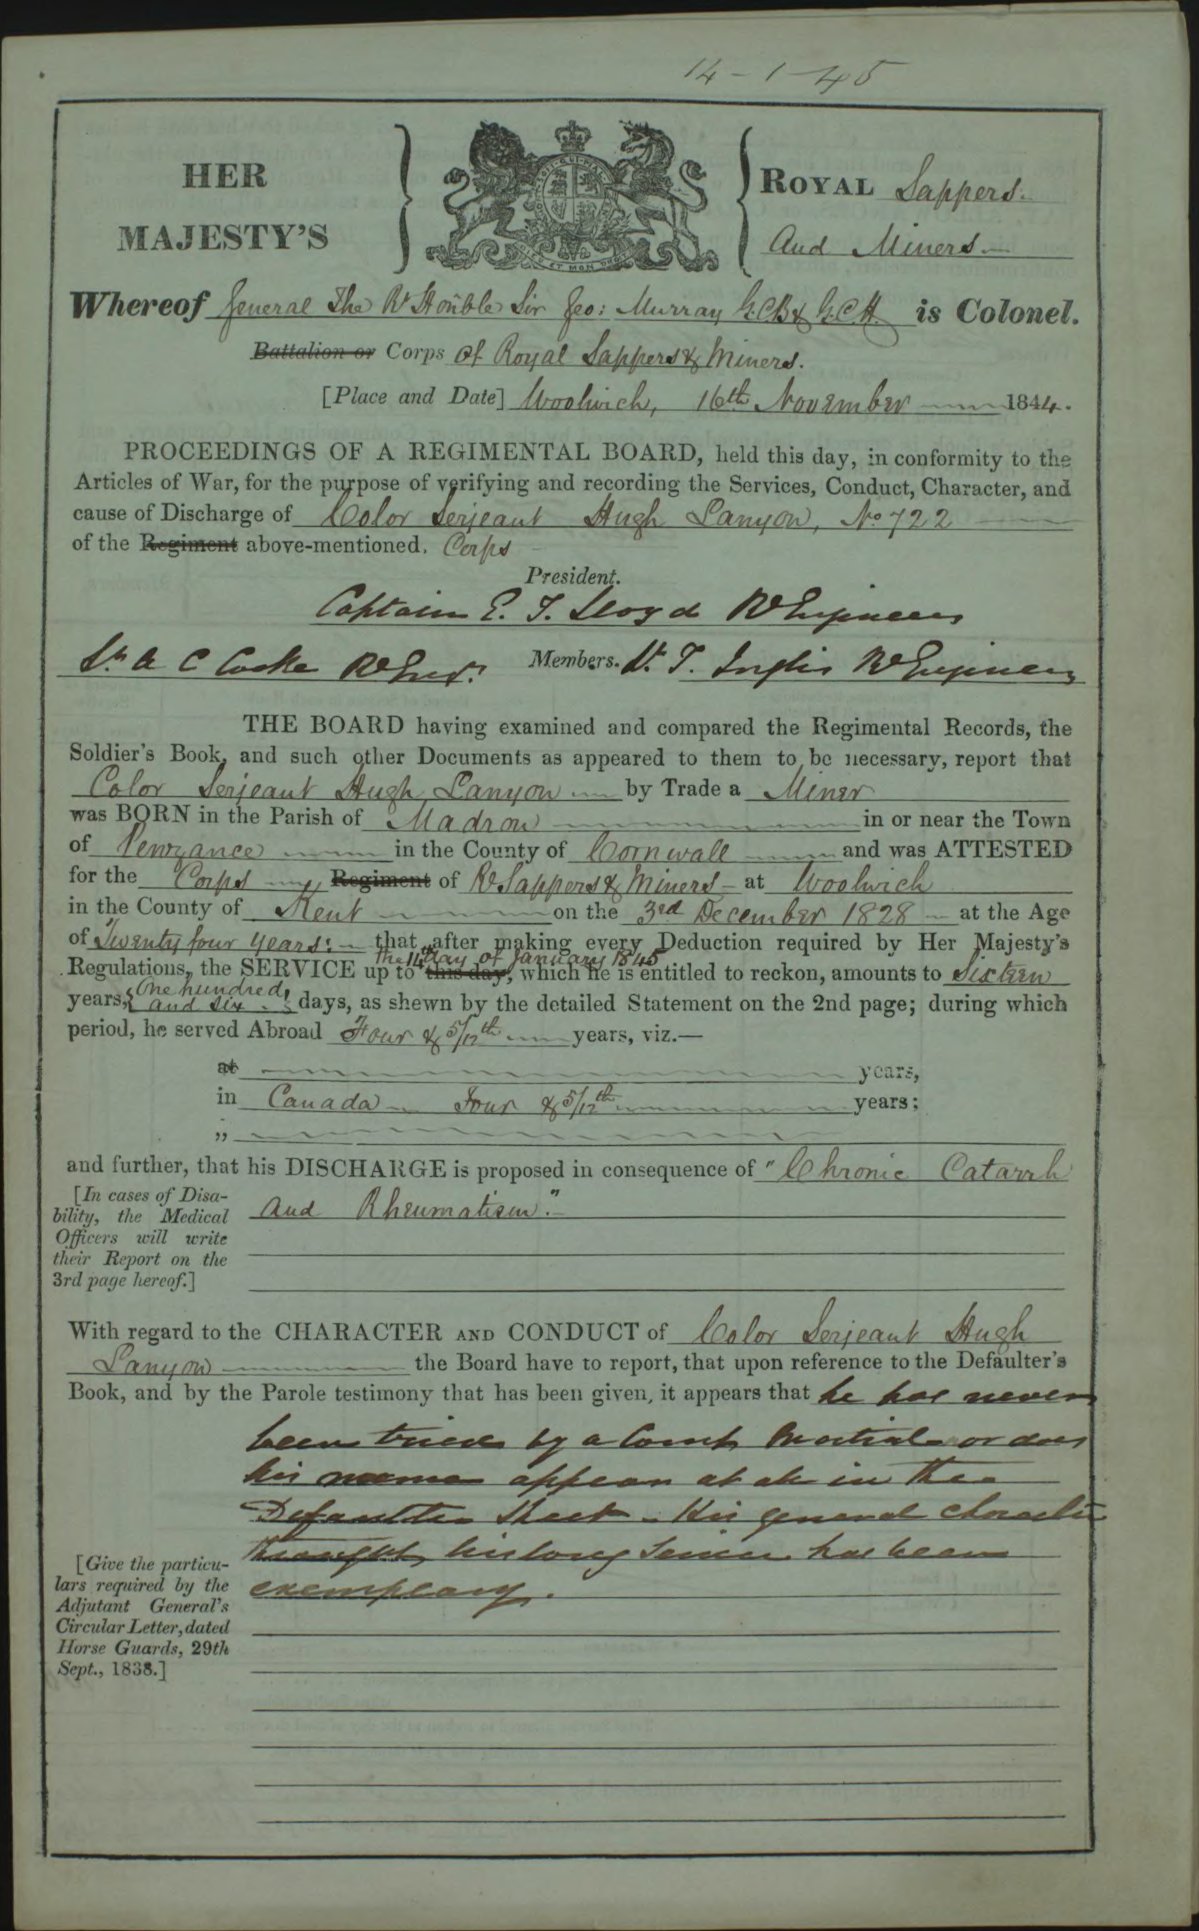 14-1-45
HER MAJESTY'S
ROYAL Sappers.
And Miners
Whereof General The Rt Honble Sir Geo: Murray G.C.B & G.C.H. is Colonel.
Battalion or Corps of Royal Sappers & Miners.
[Place and Date] Woolwich, 16th November 1844.
PROCEEDINGS OF A REGIMENTAL BOARD, held this day, in conformity to the
Articles of War, for the purpose of verifying and recording the Services, Conduct, Character, and
cause of Discharge of Color Serjeant Hugh Lanyon, No 722
of the Regiment above-mentioned. Corps
President.
Captain E. T. Lloyd R Engineers
Lt. A C Cooke R Engrs. Members. Lt. T. Inglis R Engineers
THE BOARD having examined and compared the Regimental Records, the
Soldier's Book, and such other Documents as appeared to them to be necessary, report that
Color Serjeant Hugh Lanyon by Trade a Miner
was BORN in the Parish of Madron in or near the Town
of Penzance in the County of Cornwall and was ATTESTED
for the Corps Regiment of R Sappers & Miners at Woolwich
in the County of Kent on the 3rd December 1828 at the Age
of Twenty four years; that after making every Deduction required by Her Majesty's
the 14th day of January 1845
Regulations, the SERVICE up to this day, which he is entitled to reckon, amounts to Sixteen
One hundred
years, and six days, as shewn by the detailed Statement on the 2nd page; during which
period, he served Abroad Four & 5/12th years, viz.—
at years,
in Canada Four & 5/12th years;
"
and further, that his DISCHARGE is proposed in consequence of "Chronic Catarrh
and Rheumatism."
[In cases of Disa-
bility, the Medical
Officers will write
their Report on the
3rd page hereof.]
With regard to the CHARACTER AND CONDUCT of Color Serjeant Hugh
Lanyon the Board have to report, that upon reference to the Defaulter's
Book, and by the Parole testimony that has been given, it appears that he has never
been tried by a Court Martial or does
his name appear at all in the
Defaulters Sheet - His general character
throught his long Service has been
exemplary.
[Give the particu-
lars required by the
Adjutant General's
Circular Letter, dated
Horse Guards, 29th
Sept., 1838.]